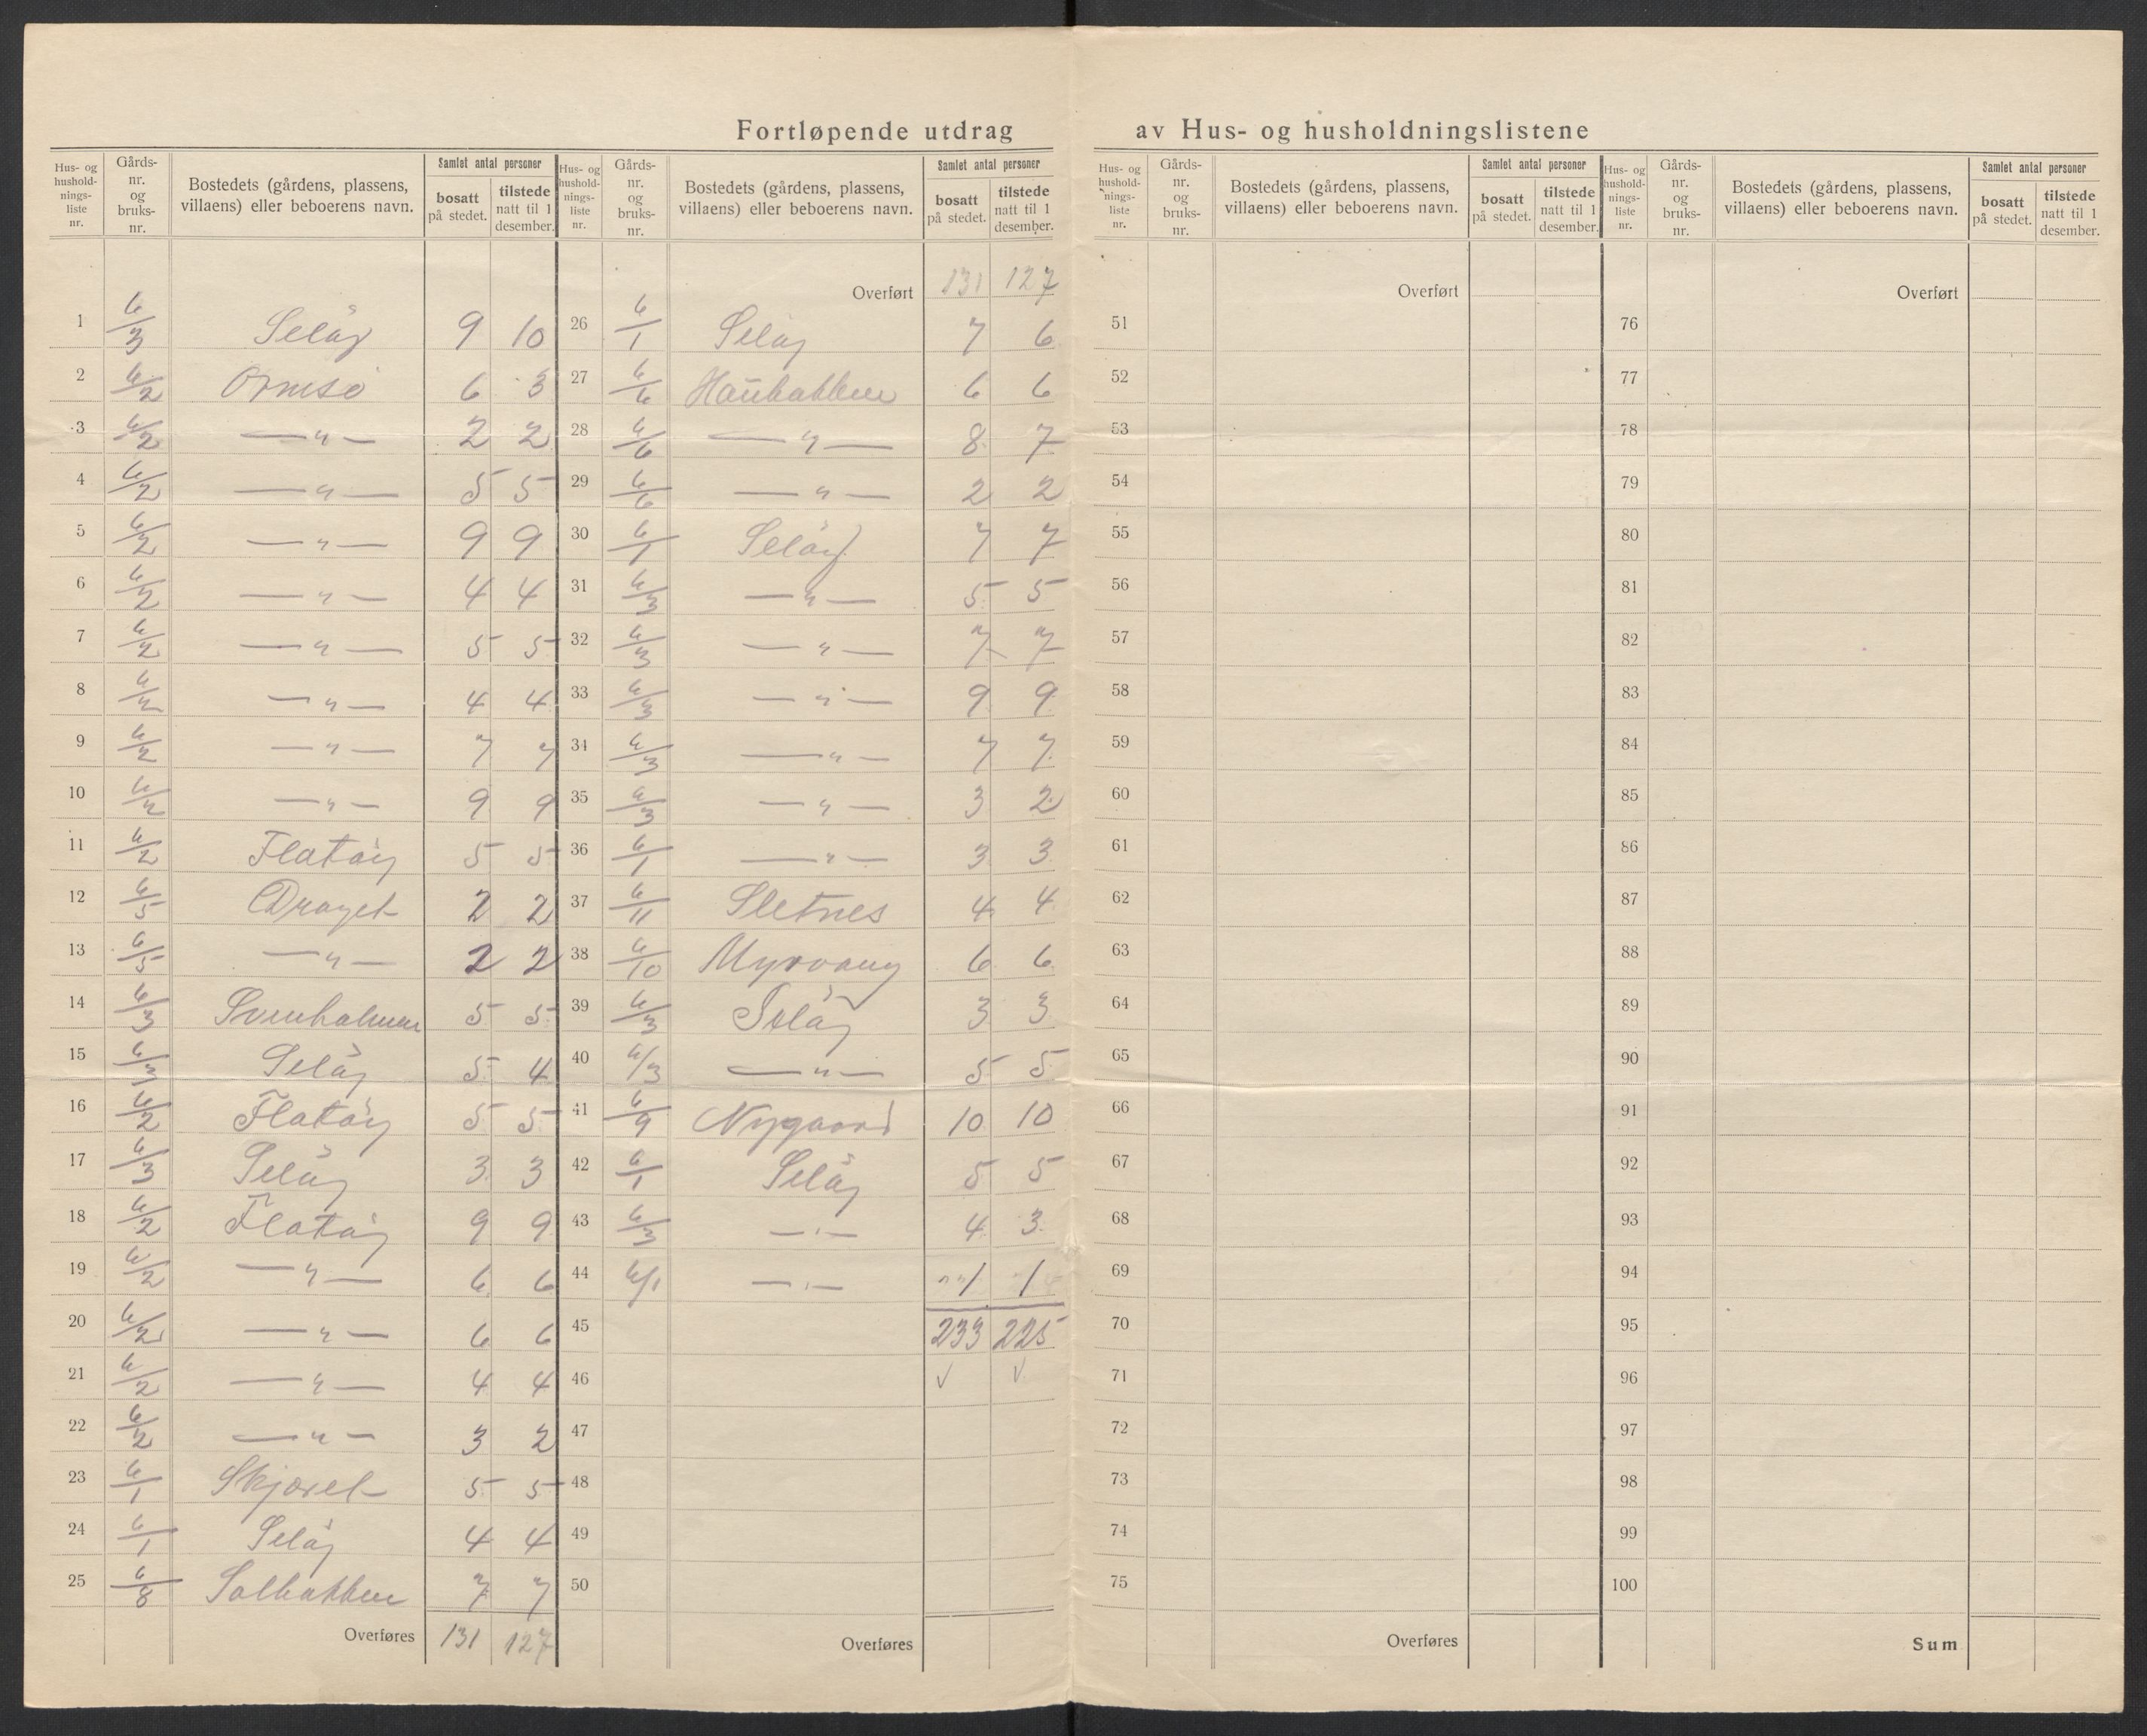 Fortløpende utdrag av Hus- og husholdningslistene
Hus- og hushold-nings-liste nr. Gårds-nr. og bruks-nr. Bostedets (gårdens, plassens, villaens) eller beboerens navn. Samlet antal personer bosatt på stedet. tilstede natt til 1 desember.
1 6/3 Seløy 9 10
2 6/2 Ormsø 6 3
3 6/2 — " — 2 2
4 6/2 — " — 5 5
5 6/2 — " — 9 9
6 6/2 — " — 4 4
7 6/2 — " — 5 5
8 6/2 — " — 4 4
9 6/2 — " — 7 7
10 6/2 — " — 9 9
11 6/2 Flatøy 5 5
12 6/5 Draget 2 2
13 6/5 — " — 2 2
14 6/3 5 5
15 6/3 Seløy 5 4
16 6/2 Flatøy 5 5
17 6/3 Seløy 3 3
18 6/2 Flatøy 9 9
19 6/2 — " — 6 6
20 6/2 — " — 6 6
21 6/2 — " — 4 4
22 6/2 — " — 3 2
23 6/1 Skjæret 5 5
24 6/1 Seløy 4 4
25 6/8 Solbakken 7 7
Overføres 131 127
Hus- og hushold-nings-liste nr. Gårds-nr. og bruks-nr. Bostedets (gårdens, plassens, villaens) eller beboerens navn. Samlet antal personer bosatt på stedet. tilstede natt til 1 desember.
Overført 131 127
26 6/1 Seløy 7 6
27 6/6 Haubakken 6 6
28 6/6 — " — 8 7
29 6/6 — " — 2 2
30 6/1 Seløy 7 7
31 6/3 — " — 5 5
32 6/3 — " — 7 7
33 6/3 — " — 9 9
34 6/3 — " — 7 7
35 6/3 — " — 3 2
36 6/1 — " — 3 3
37 6/11 Sletnes 4 4
38 6/10 Myrvang 6 6
39 6/3 Seløy 3 3
40 6/3 — " — 5 5
41 6/9 Nygaard 10 10
42 6/1 Seløy 5 5
43 6/3 — " — 4 3
44 6/1 — " — 1 1
45 233 225
46 √ √
47
48
49
50
Overføres
Hus- og hushold-nings-liste nr. Gårds-nr. og bruks-nr. Bostedets (gårdens, plassens, villaens) eller beboerens navn. Samlet antal personer bosatt på stedet. tilstede natt til 1 desember.
Overført
51
52
53
54
55
56
57
58
59
60
61
62
63
64
65
66
67
68
69
70
71
72
73
74
75
Overføres
Hus- og hushold-nings-liste nr. Gårds-nr. og bruks-nr. Bostedets (gårdens, plassens, villaens) eller beboerens navn. Samlet antal personer bosatt på stedet. tilstede natt til 1 desember.
Overført
76
77
78
79
80
81
82
83
84
85
86
87
88
89
90
91
92
93
94
95
96
97
98
99
100
Sum